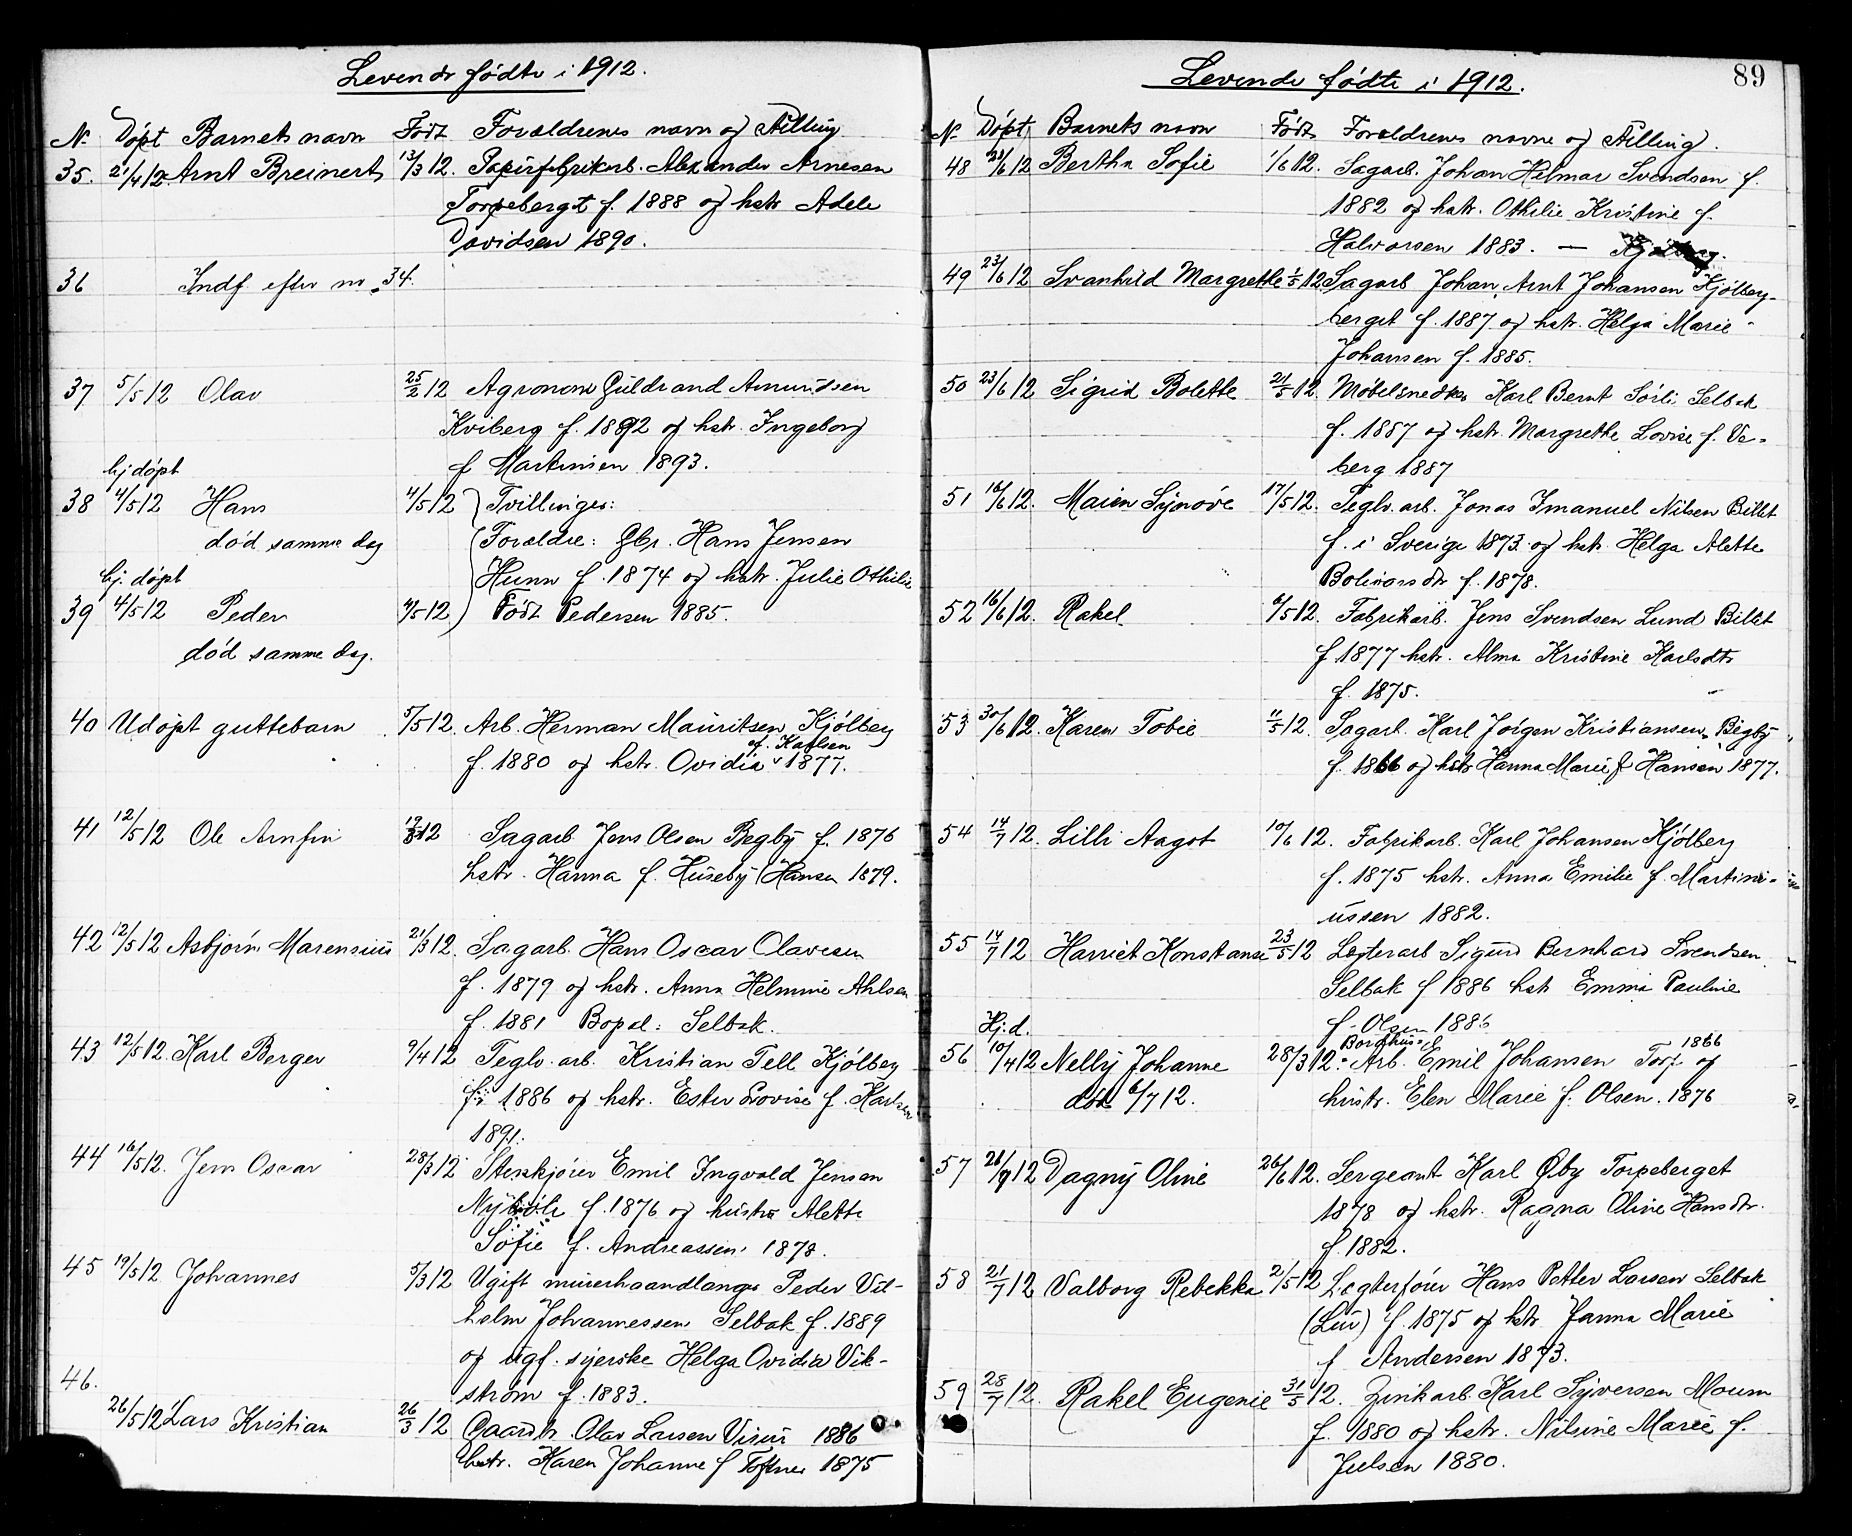 Levende fødte i 1912.
N. Døpt Barnets navn Født Forældrenes navn og Stilling
35. 21/4 12. Arnt Breinert 13/3 12. Papirfabrikarb. Alexander Arnesen
Torpeberget f. 1888 og hstr Adele
Davidsen 1890.
36 Indf efter nr. 34.
37 5/5 12 Olav 25/2 12 Agronom Guldrand Amundsen
Kviberg f. 1892 og hstr. Ingeborg
f Martinsen 1893.
hj døpt
38 4/5 12 Hans 4/5 12 Tvillinger:
død samme dag Forældre: Gbr. Hans Jensen
hj. døpt Hunn f. 1874 og hstr. Julie Othilie
39 4/5 12 Peder 4/5 12 Født Pedersen 1885.
død samme dag.
40 Udøpt guttebarn 5/5 12. Arb. Herman Mauritsen Kjølberg
f. Karlsen
f. 1880 og hstr. Ovidia 1877.
41 12/5 12 Ole Arnfin 12 Sagarb Jens Olsen Begby f. 1876
hstr. Hanna f. Huseby (Hansen 1879.
42 12/5 12 Asbjørn Marensius 21/3 12. Sagarb. Hans Oscar Olavesen
f. 1879 og hstr. Anna Helmine Ahlsen
f. 1881 Bopæl: Selbak.
43 12/5 12. Karl Berger 9/4 12 Teglv. arb. Kristian Tell Kjølberg
1886 og hstr. Ester Lovise f. Karlsen
1891.
44 16/5 12. Jens Oscar 28/3 12 Stenkjører Emil Ingvald Jensen
f. 1876 og hustru Alette
Sofie f. Andreassen 1878.
45 19/5 12 Johannes 5/3 12 Ugift murerhaandlanger Peder Vil-
helm Johannessen Selbak f. 1889
og ugf. syerske Helga Ovidia Vik-
46. strøm f. 1883.
26/5 12 Lars Kristian 26/3 12 Gaardbr. Olav Larsen Visur 1886
hstr. Karen Johanne f Toftner 1875
89
Levende fødte i 1912.
N. Døpt Barnets navn Født Forældrenes navne og Stilling.
48 /6 12 Bertha Sofie 1/6 12. Sagarb. Johan Hilmar Svendsen f.
1882 og hstr. Othilie Kristine f.
Halvorsen 1883. — Kjølberg.
49 23/6 12 Svanhild Margrethe 1/5 12 Sagarb Johan Arnt Johansen Kjølberg-
berget f. 1887 og hstr. Helga Marie
Johansen f. 1885.
50 23/6 12 Sigrid Bolette 21/5 12. Møbelsnedker Karl Bernt Sørli Selbak
f. 1887 og hstr. Margrethe Lovise f. Ve-
berg 1887
51 16/6 12. Maien Synøve 17/5 12. Teglv. arb. Jonas Imanuel Nilsen Billet
f. i Sverige 1873 og hstr. Helga Alette
f. 1878.
52 16/6 12. Rakel 6/5 12. Fabrikarb. Jens Svendsen Lund Billet
f 1877 hstr. Alma Kristine Karlsdtr
f. 1875.
53 30/6 12. Karen Tobie 11/5 12. Sagarb. Karl Jørgen Kristiansen, Begby
f. 1866 og hstr Hanna Marie f Hansen 1877.
54 14/7 12. Lilli Aagot 10/6 12. Fabrikarb. Karl Johansen Kjølberg
f. 1875 hstr. Anna Emilie f. Martini-
ussen 1882.
55 14/7 12 Harriet Konstanse 23/5 12 Legterarb Sigurd Bernhard Svendsen
Selbak f 1886 hstr Emma Pauline
Hj. d. f. Olsen 1886
1866
56 10/4 12 Nelly Johanne 28/3 12. Arb. Emil Johansen Torp og
død 6/7 12. hustr. Elen Marie f. Olsen. 1876
57 21/7 12 Dagny Oline 26/6 12. Sergeant Karl Øby Torpeberget
1878 og hstr. Ragna Oline Hansdtr.
f. 1882.
58 21/7 12 Valborg Rebekka 2/5 12 Legterfører Hans Petter Larsen Selbak
(Lur) f. 1875 og hstr Janna Marie
f Andersen 1873.
59 28/7 12. Rakel Eugenie 31/5 12. Zinkarb Karl Syversen Moum
f. 1880 og hstr. Nilsine Marie f.
Julsen 1880.